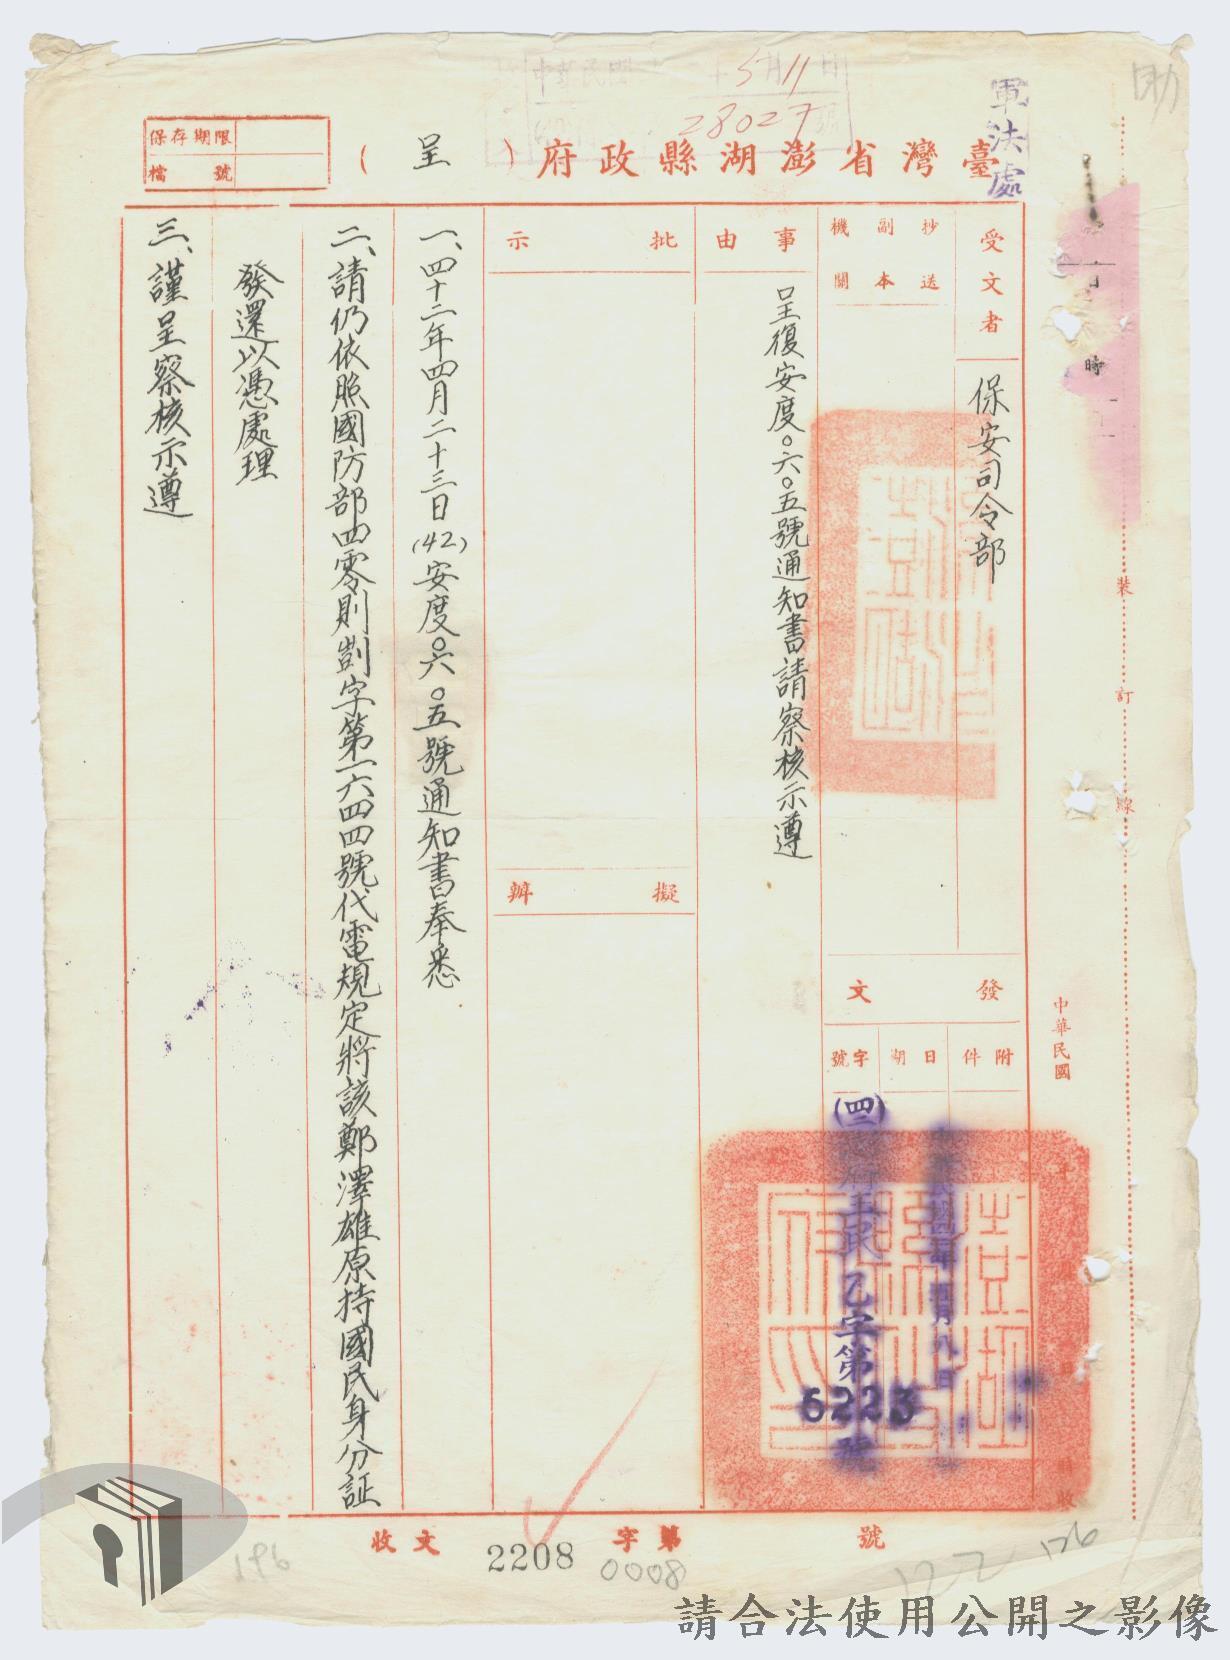 軍法處
中華民國 5月11日
28027號
臺灣省澎湖縣政府（呈）
保存期限
檔號
受文者
保安司令部
抄送
副本
機關
事由
呈復安度○六○五號通知書請察核示遵
批示
擬辦
發文
附件
日期
字號
中華民國四二年五月八日
(四二)
府玉民乙字第
6223
號
一、四十二年四月二十三日(42)安度○六○五號通知書奉悉
二、請仍依照國防部四零則剴字第一六四四號代電規定將該鄭澤雄原持國民身分証
發還以憑處理
三、謹呈察核示遵
裝訂線
中華民國
時
收文 字第 號
2208
0008
196
122
126
請合法使用公開之影像